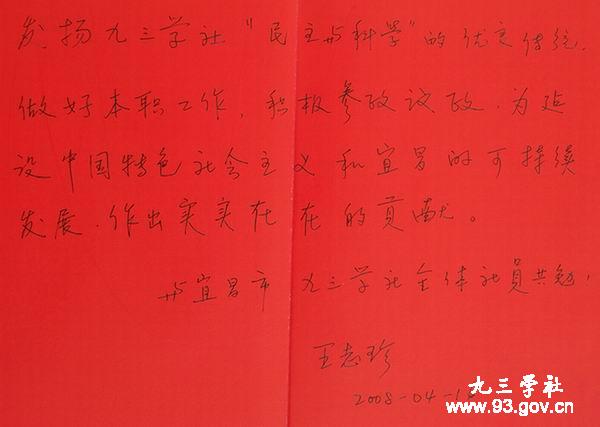 发扬九三学社“民主与科学”的优良传统，
做好本职工作，积极参政议政，为建
设中国特色社会主义和宜昌的可持续
发展，作出实实在在的贡献。
与宜昌市九三学社全体社员共勉，
王志珍
2008-04-1
九三学社
www.93.gov.cn